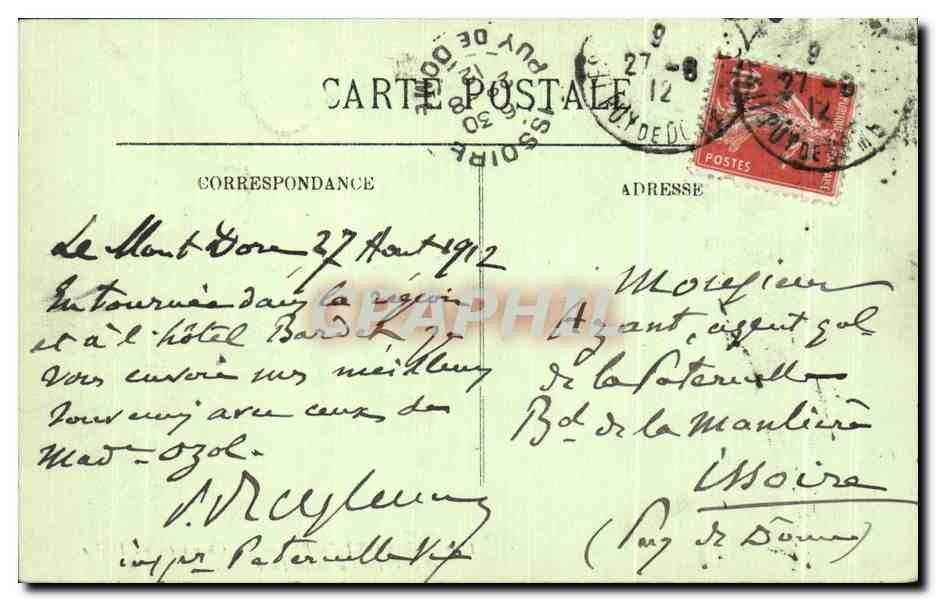 CARTE POSTALE
ISSOIRE
PUY DE DOME
6 30
8
12
9
27 -8
12
PUY DE DOME
9
27 -8
12
PUY DE DOME
10
POSTES
CORRESPONDANCE
ADRESSE
CPAPHIL
Le Mont Dore 27 Aout 1912
En tournée dans la région
et à l'hôtel Bardet je
vous envoie mes meilleurs
souvenirs avec ceux de
Made Ozol.
insp Paternelle Vie
Monsieur
Azant, agent gal
de la Paternelle
Bd de la Manlière
Issoire
(Puy de Dôme)